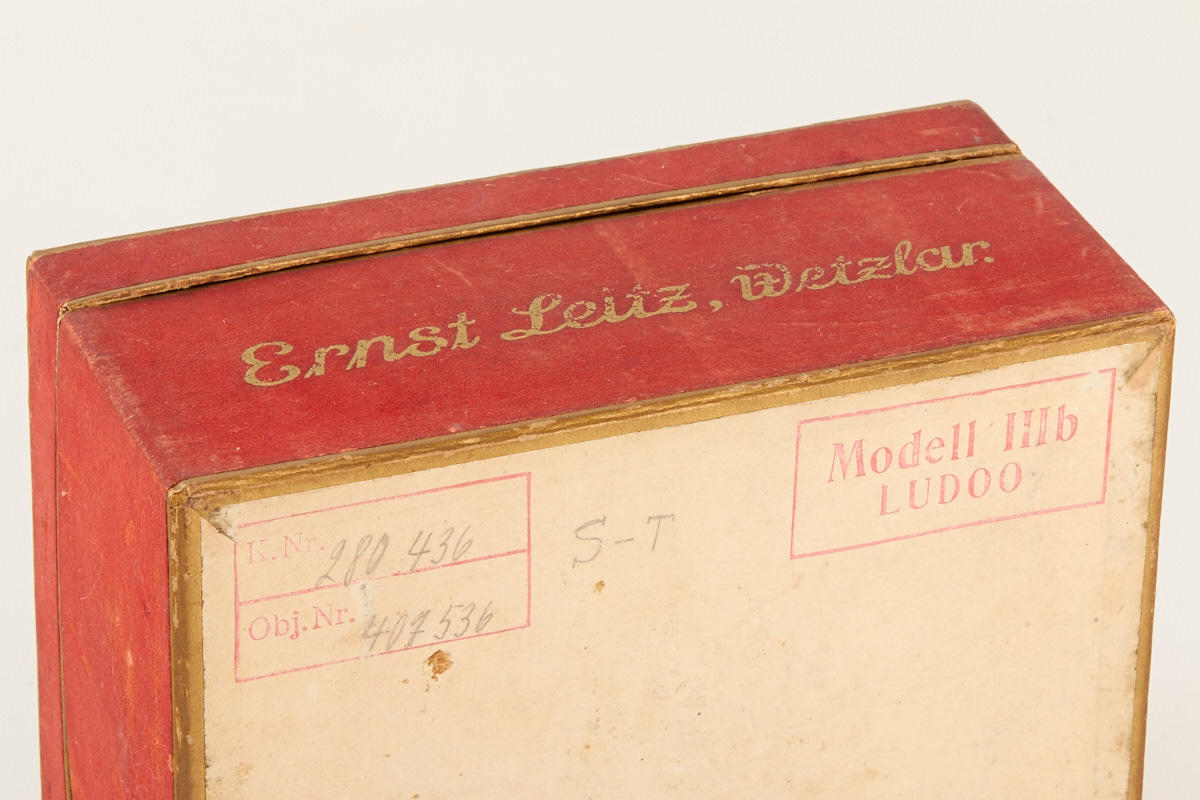 Ernst Leitz, Wetzlar.
Modell IIIb
LUDOO
K. Nr. 280 436
S-T
Obj. Nr. 407536